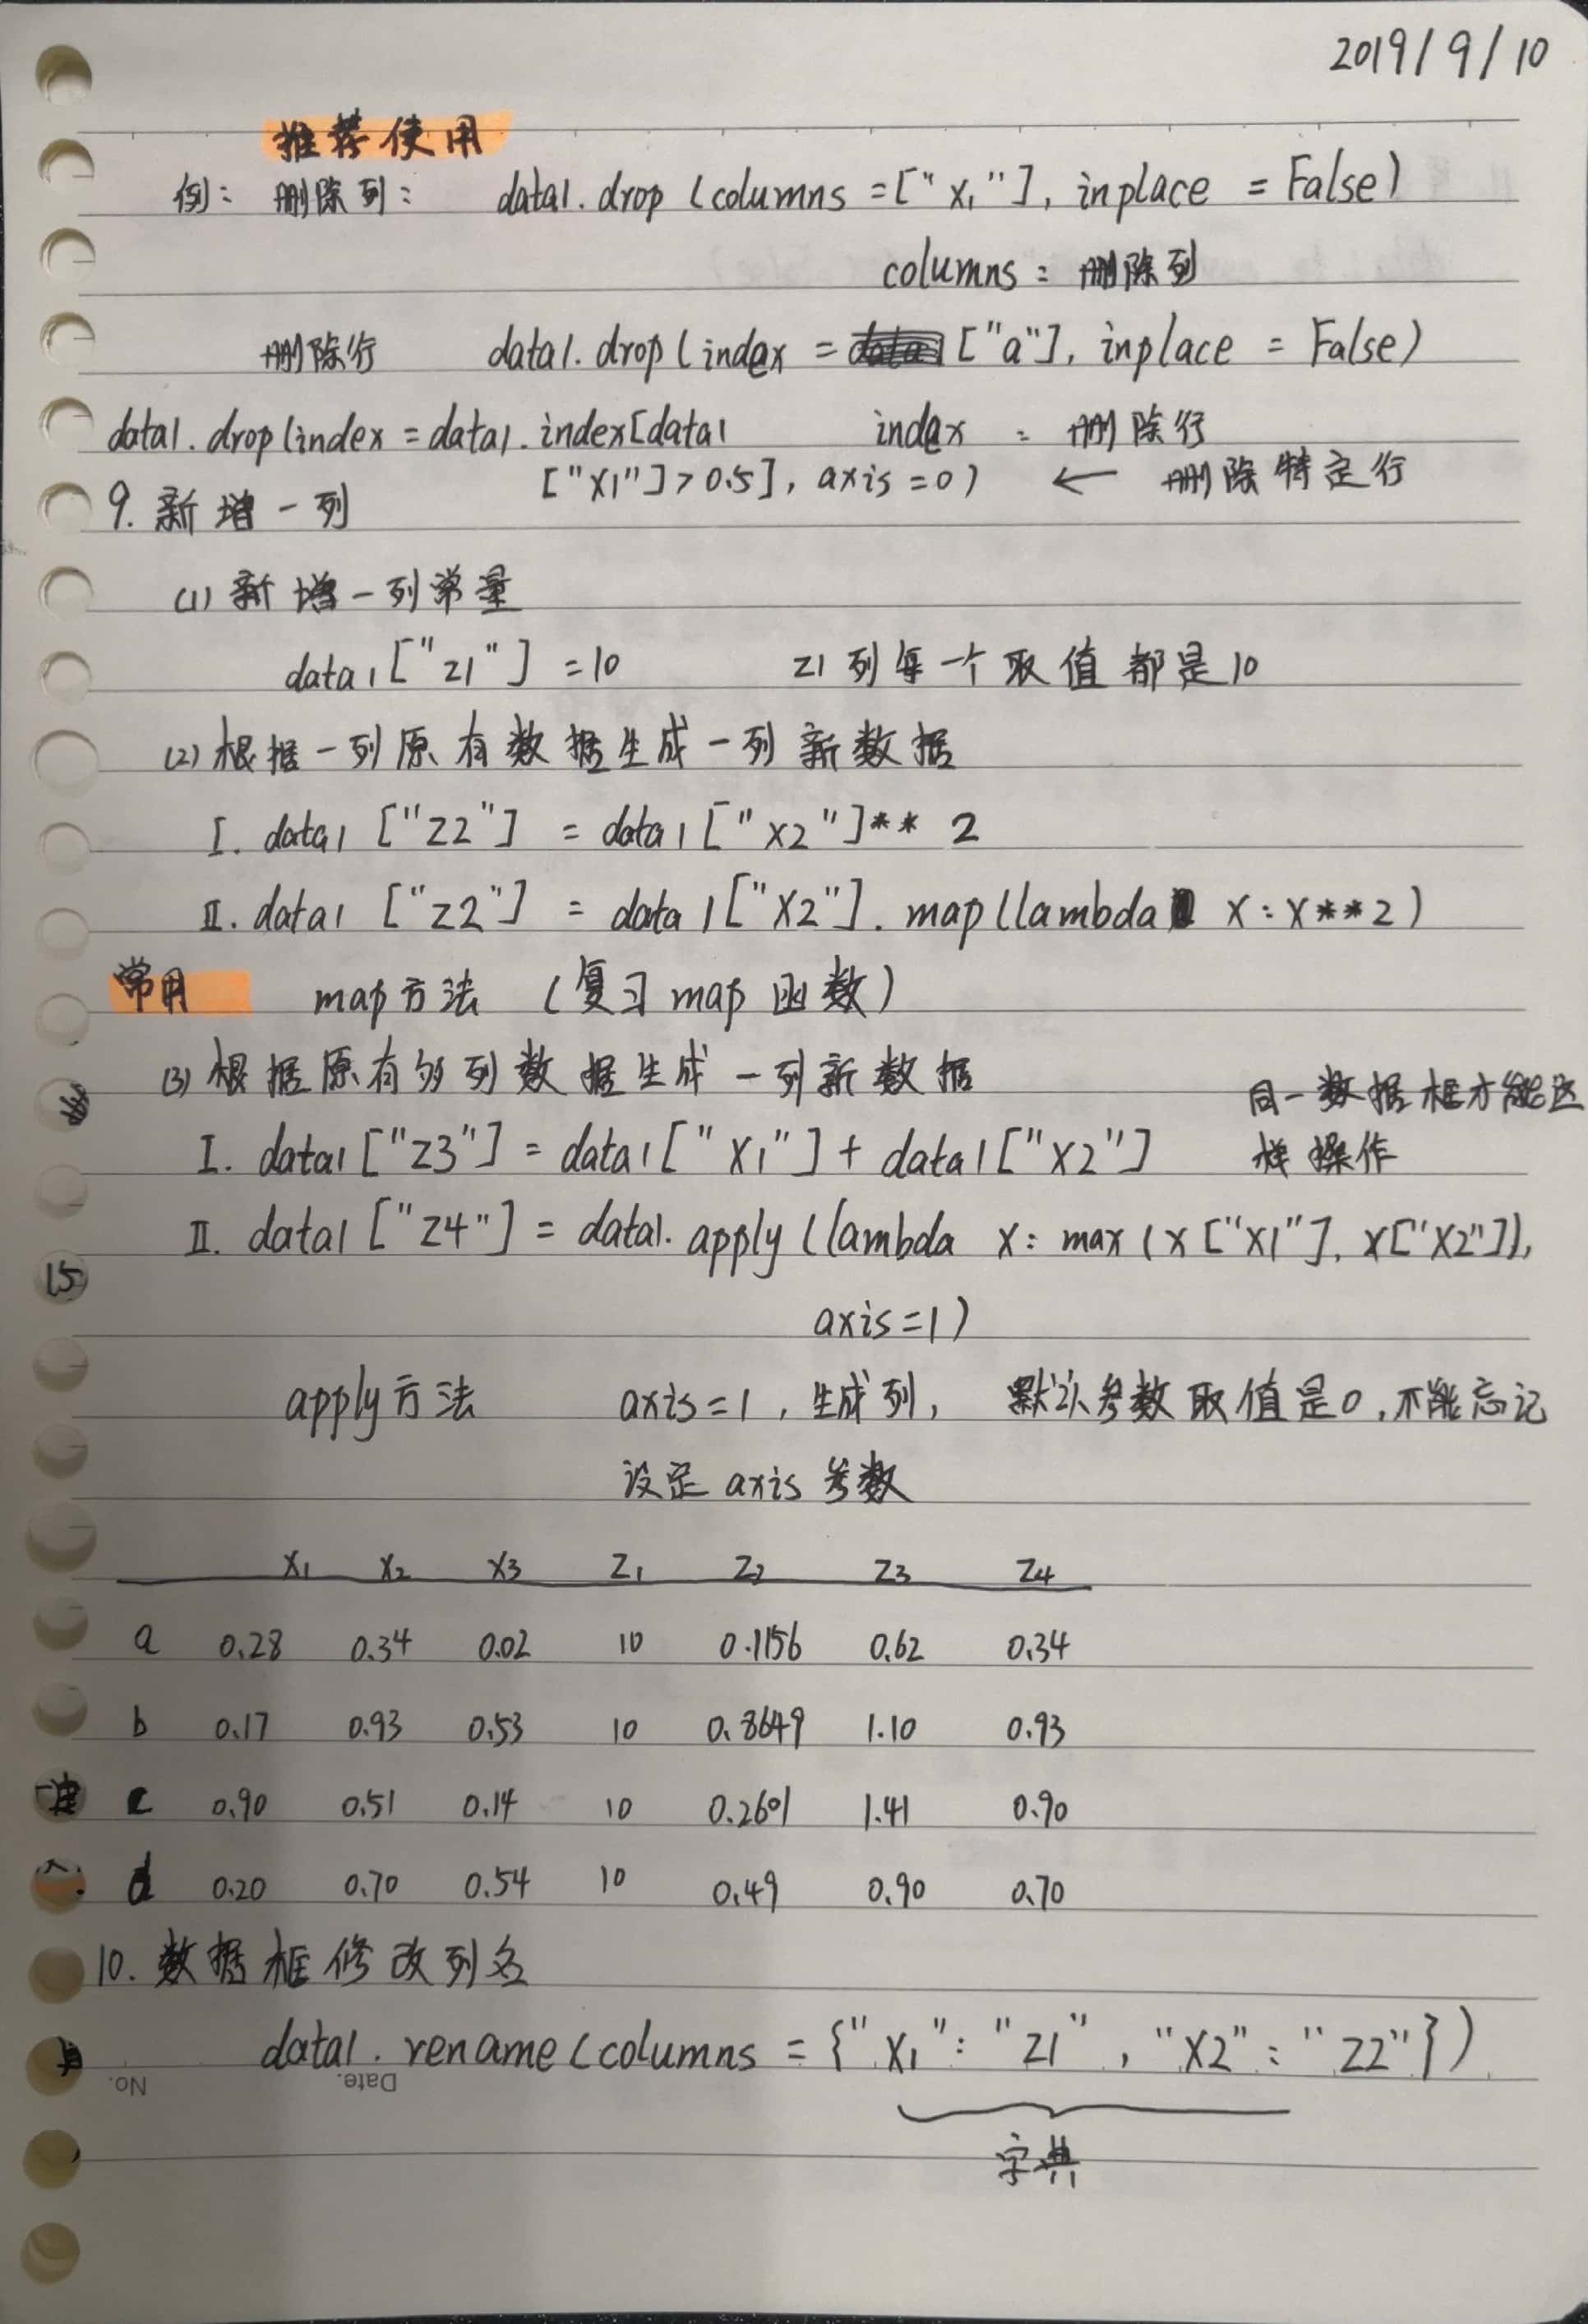 2019/9/10
推荐使用
例：删除列： data1.drop(columns=["x1"], inplace = False)
columns：删除列
删除行 data1.drop(index = ["a"], inplace = False)
data1.drop(index=data1.index[data1 index：删除行
["X1"]>0.5], axis=0) ← 删除特定行
9. 新增一列
(1) 新增一列常量
data1["z1"] =10 z1列每一个取值都是10
(2) 根据一列原有数据生成一列新数据
I. data1 ["Z2"] = data1["x2"]** 2
II. data1 ["Z2"] = data1["X2"].map(lambda X:X**2)
常用 map方法 (复习map函数)
(3) 根据原有多列数据生成一列新数据
同一数据框才能这
I. data1["Z3"] = data1["X1"] + data1["X2"] 样操作
II. data1["Z4"] = data1.apply(lambda X: max(X["X1"], X["X2"]),
axis=1)
apply方法 axis=1，生成列， 默认参数取值是0,不能忘记
设定axis参数
X1 X2 X3 Z1 Z2 Z3 Z4
a 0.28 0.34 0.02 10 0.1156 0.62 0.34
b 0.17 0.93 0.53 10 0.8649 1.10 0.93
c 0.90 0.51 0.14 10 0.2601 1.41 0.90
d 0.20 0.70 0.54 10 0.49 0.90 0.70
10. 数据框修改列名
data1.rename(columns = {"X1": "Z1", "X2": "Z2"})
No. Date.
字典
15